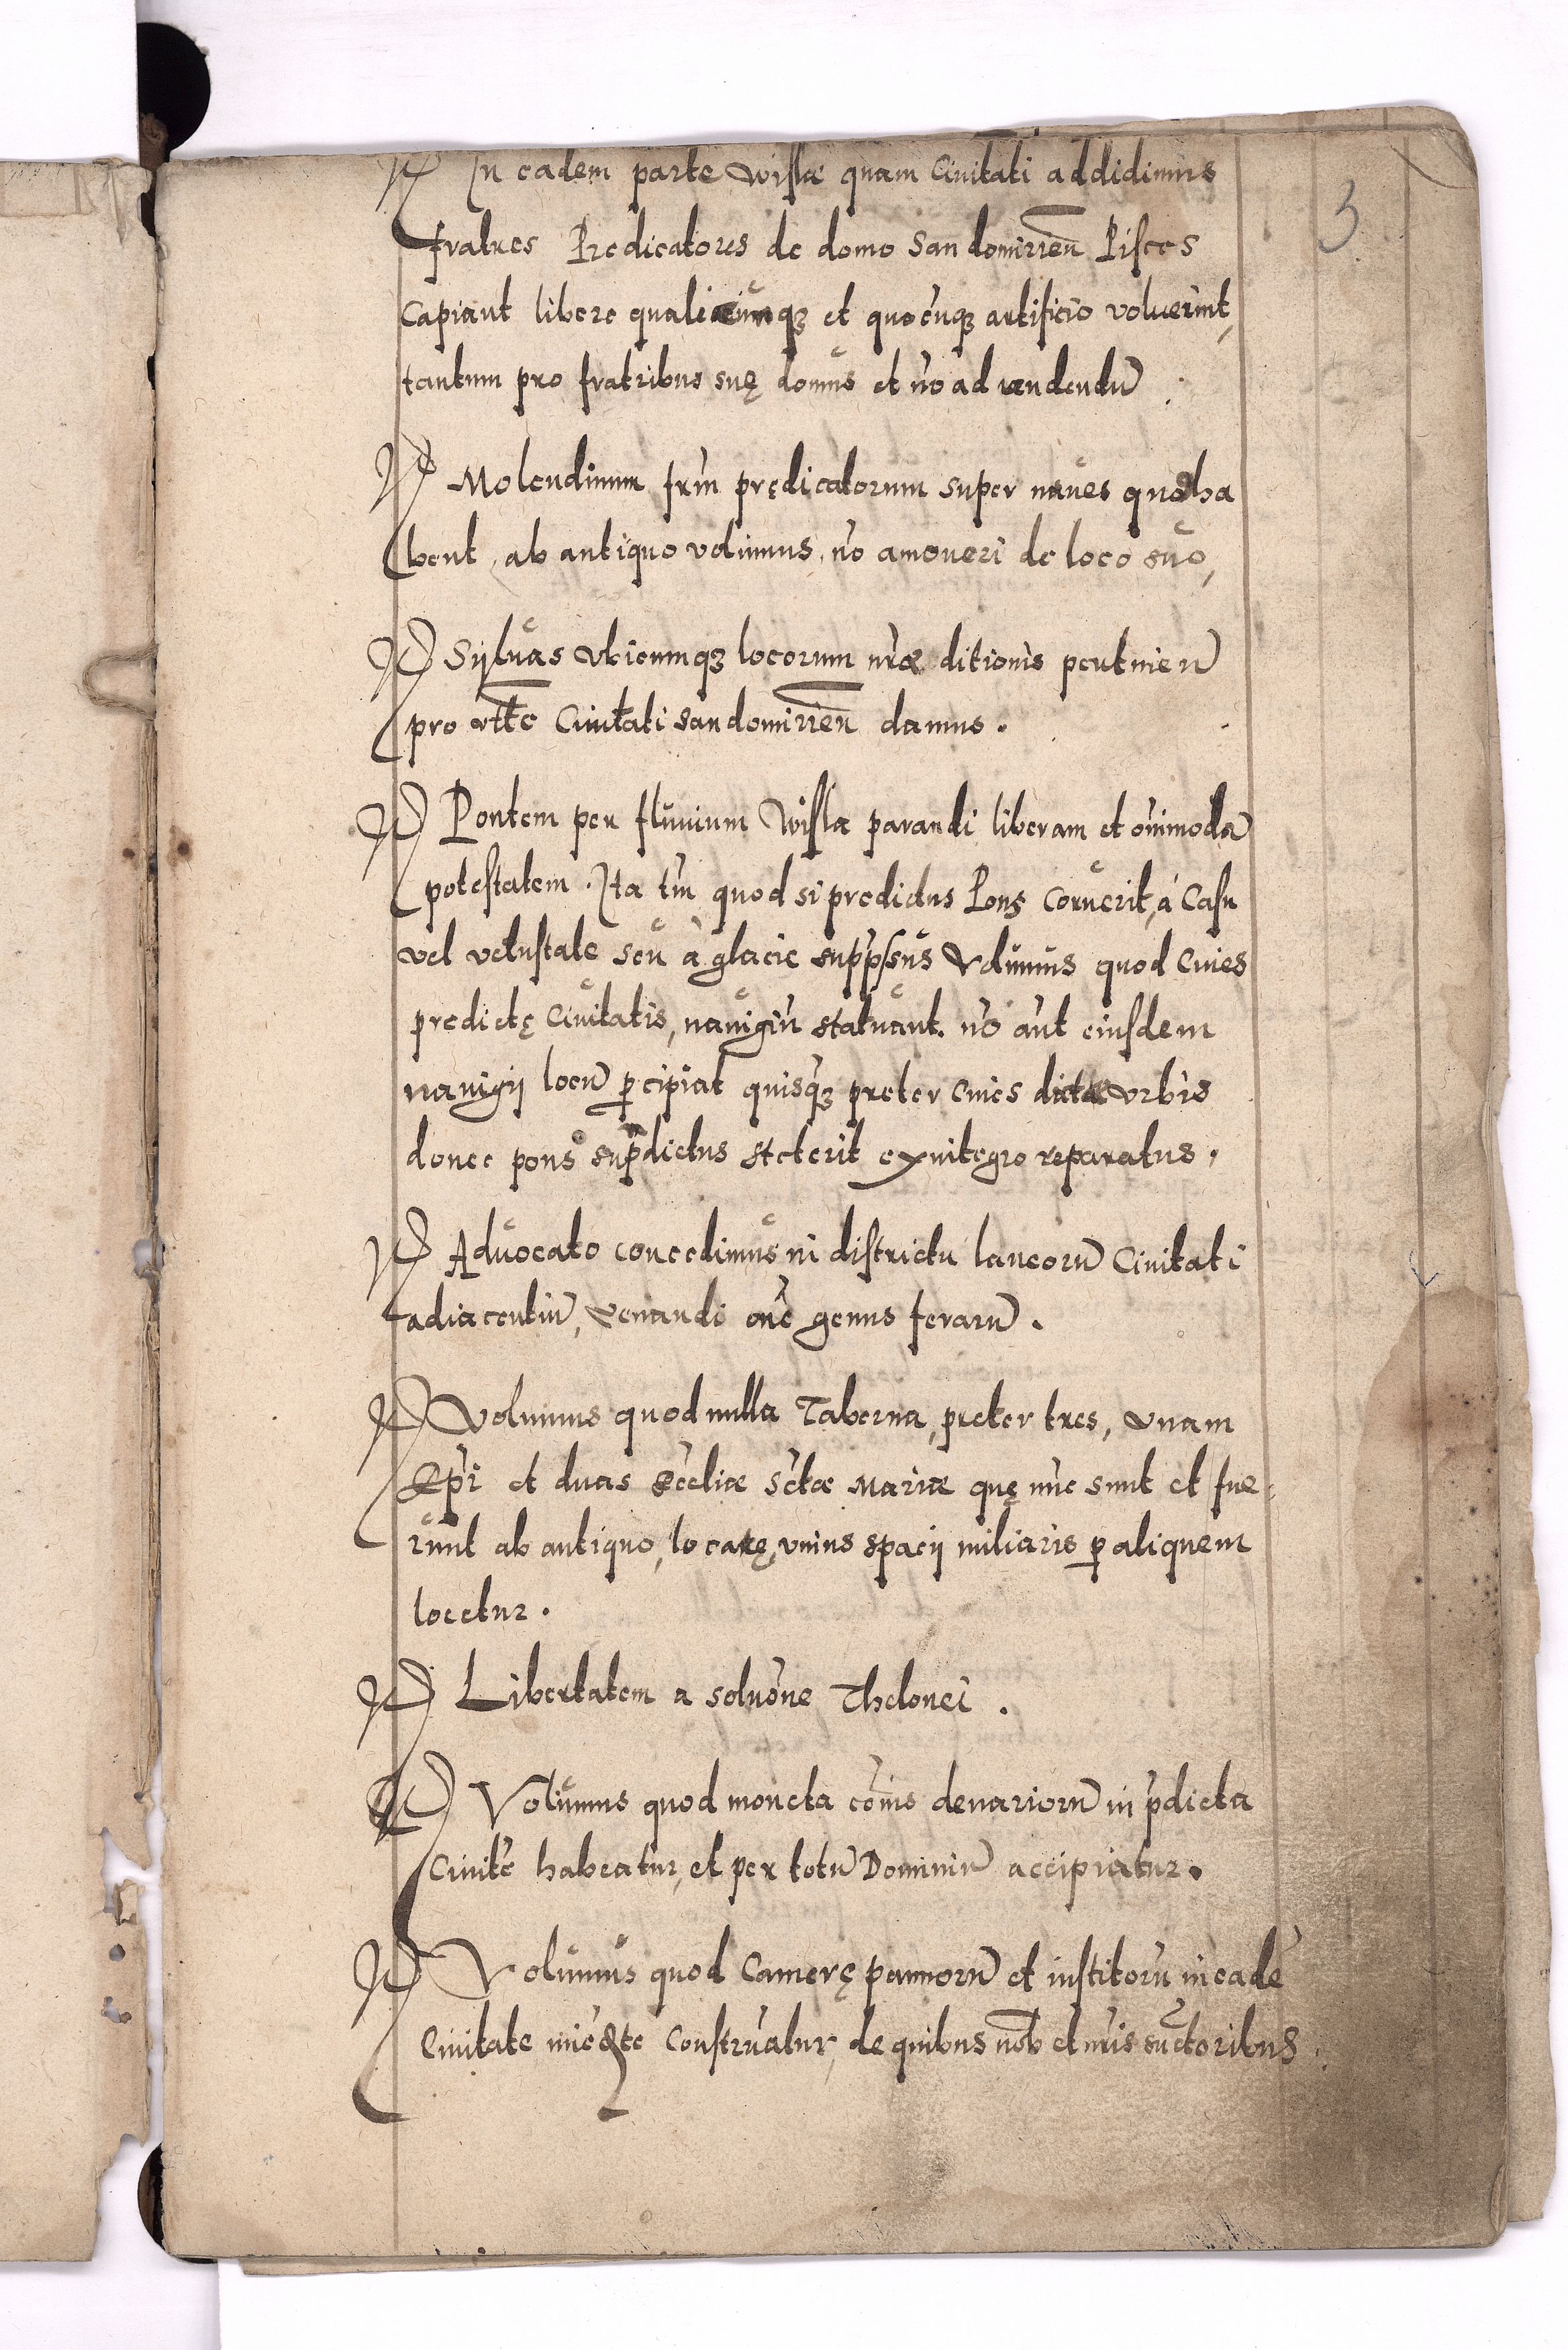 3
In eadem parte Wislæ quam Ciuitati addidimus
fratres Predicatores de domo Sandomirień Pisces
Capiant libere qualicunqȝ et quocūqȝ artificio voluerint,
tantum pro fratribus suę domus et nō ad vendendū.
Molendinum frm̄ prędicatorum super naues quod ha
bent, ab antiquo volumus, nō amoueri de loco suo,
Syluas vbicumqȝ locorum nr̄æ ditionis pertnień
pro vtl̄te Ciuitati Sandomirień damus.
Pontem per fluuium Wislæ parandi liberam et oīmodā
potestatem. Ita tm̄ quod si predictus Pons Corruerit, à Casu
vel vetustate seu à glacie supp̄ssus Volumus quod Ciues
predictę Ciuitatis, nauigiū statuant. nō aūt eiusdem
nauigij locū ꝑcipiat quisqȝ preter Ciues dictæ vrbis
donec pons sup̄dictus steterit ex integro reparatus.
Aduocato concedimus in districtu laneorū Ciuitati
adiacentiū, venandi om̄e genus ferarū.
Volumus quod nulla Taberna, preter tres, vnam
Ep̄i et duas Ecc̄liæ S̄ctæ Mariæ quę nūc sunt et fue-
runt ab antiquo, locatę, vnius spacij miliaris ꝑ aliquem
locetur.
Libertatem a soluōne Thelonei.
Volumus quod moneta cōīs denariorū in p̄dicta
Ciuitē habeatur, et per totū Dominiū accipiatur.
Volumus quod Camerę pannorū et institorū in eadē
Ciuitate Construatur, de quibus nob̄ et nr̄is succtoribus